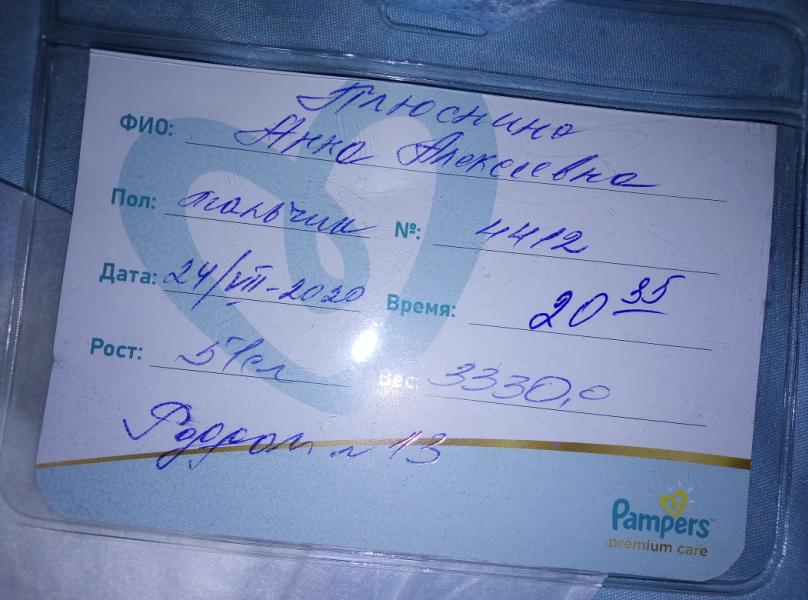 Плюснина
ФИО: Анна Алексеевна
Пол: мальчик №: 4412
Дата: 24/VIII-2020 Время: 20 35
Рост: 51см Вес: 3330,0
Роддом № 13
Pampers
premium care